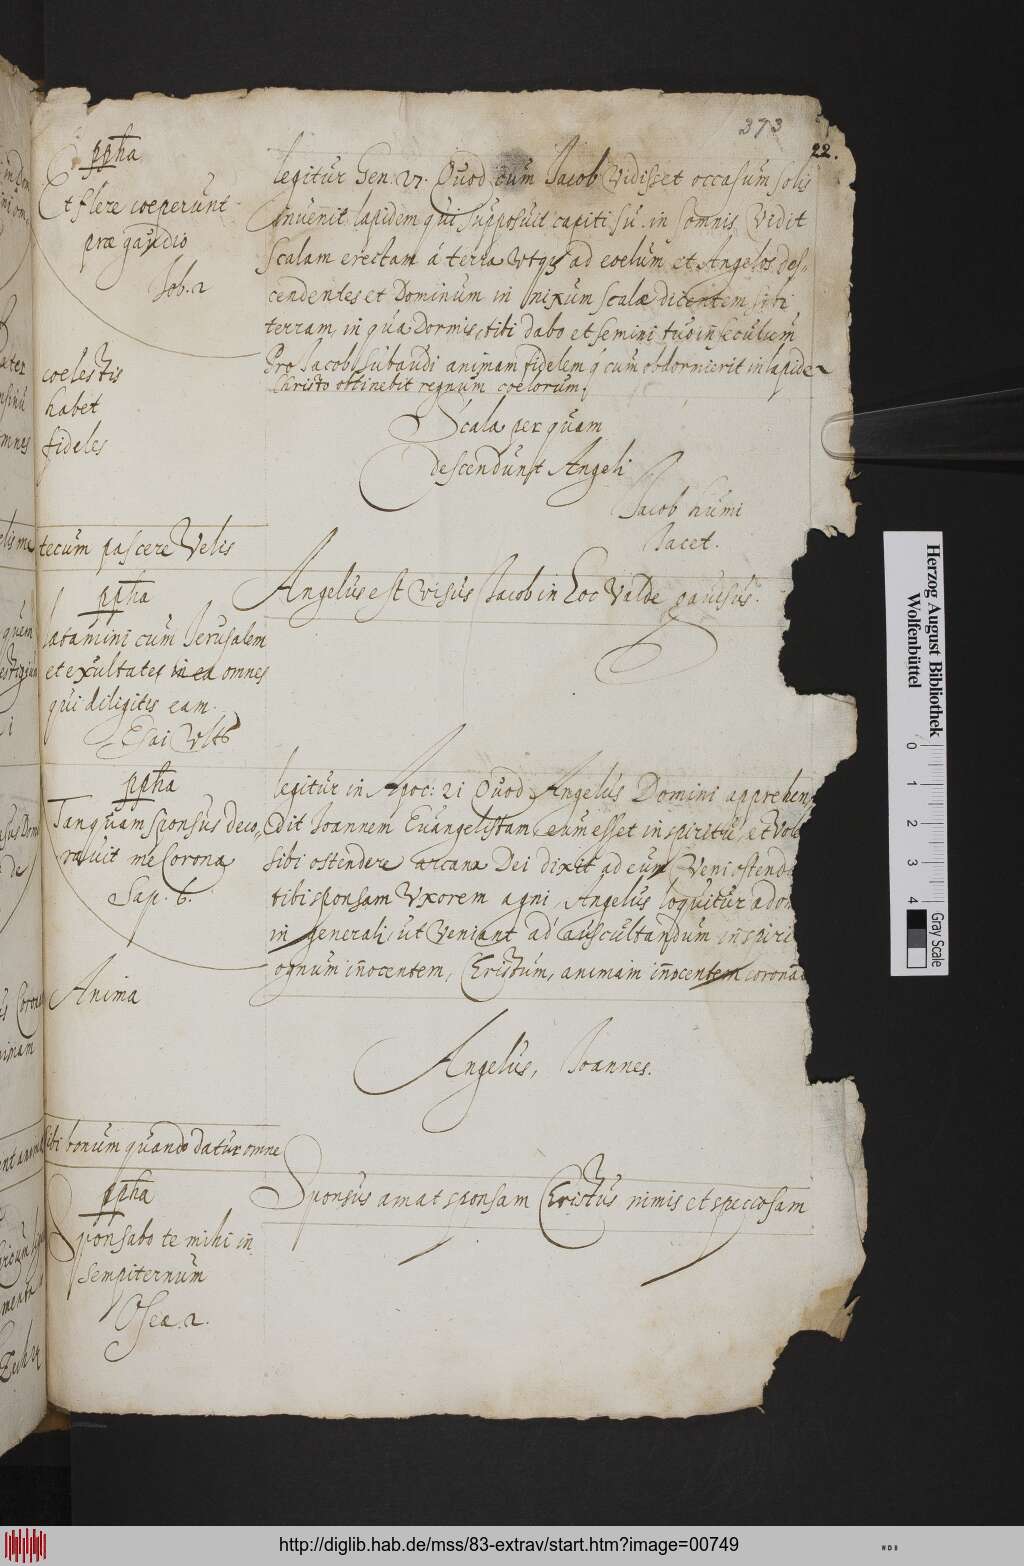 373
22.
ppha
Et flere coeperunt
præ gaudio
Iob. 2
coelestis
habet
fideles
tecum pascere Velis
ppha
lætamini cum Jerusalem
et exultates in ea omnes
qui diligitis eam.
Esai Vlt
ppha
Tanquam sponsus deco
rauit me Corona
Sap. 6.
Anima
sibi bonum quando datur omne
ppha
Sponsabo te mihi in
sempiternum
Osea. 2.
legitur Gen. 27. Quod cum Jacob Vidisset occasum solis
inuenit lapidem qui supposuit capiti su. in somnis Vidit
Scalam erectam á terra Vtqs ad coelum et Angelos des-
cendentes et Dominum in nixum scalæ dicentem sibi
terram, in qua Dormis, tibi dabo et semini tuo in seculum
Pro Jacob subaudi animam fidelem q cum obdormierit in lapide
Christo obtinebit regnum coelorum.
Scala per quam
descendunt Angeli
Jacob humi
Iacet.
Angelus est visus Jacob in Loc Valde gauisus.
legitur in Apoc: 21 Quod Angelus Domini apprehen
dit Joannem Euangelistam cum esset in spiritu, et Vol
sibi ostendere arcana Dei dixit ad eum Veni ostenda
tibi sponsam Vxorem agni, Angelus loquitur ad
in generali, ut Veniant ad auscultandum in spiri
agnum innocentem, Christum, animam innocentem corona
Angelus, Joannes.
Sponsus amat sponsam Christus nimis et speciosam
Herzog August Bibliothek
Wolfenbüttel
0 1 2 3 4
Gray Scale
http://diglib.hab.de/mss/83-extrav/start.htm?image=00749